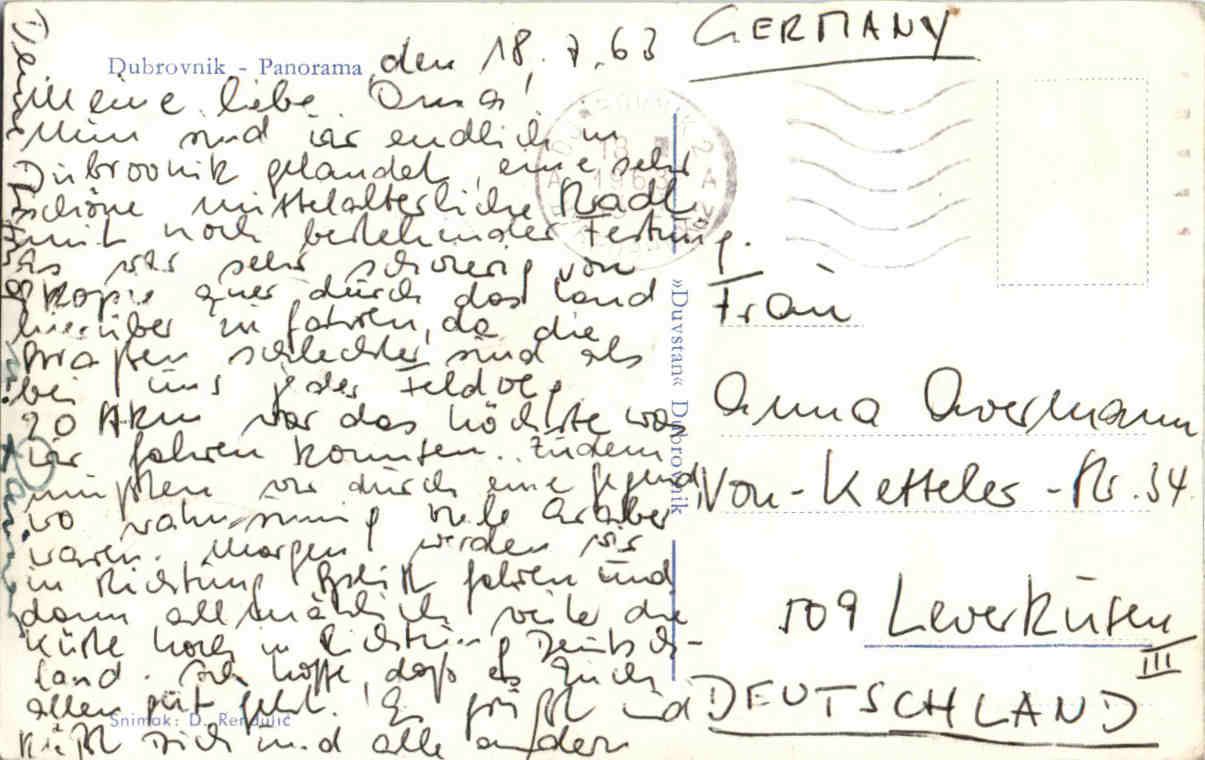 Dubrovnik - Panorama, den 18.7.63
Meine liebe Oma!
Nun sind wir endlich in
Dubrovnik gelandet, eine sehr
schöne mittelalterliche Stadt
mit noch bestehender Festung.
Es war sehr schwierig von
Skopje quer durch das Land
hierüber zu fahren, da die
Straßen schlechter sind als
bei uns jeder Feldweg.
20 Km war das höchste was
wir fahren konnten. Zudem
mußten wir durch eine Gegend
wo wahnsinnig viele Araber
waren. Morgen werden wir
in Richtung Split fahren und
dann allmählich weiter die
Küste hoch in Richtung Deutsch-
land. Ich hoffe, daß es Euch
allen gut geht. Es grüßt und
küßt Dich und alle andern
Deine
Snimak: D. Rendulić
»Duvstan« Dubrovnik
GERMANY
Frau
Anna Overmann
Von-Ketteler-Str. 34
509 Leverkusen
III
DEUTSCHLAND